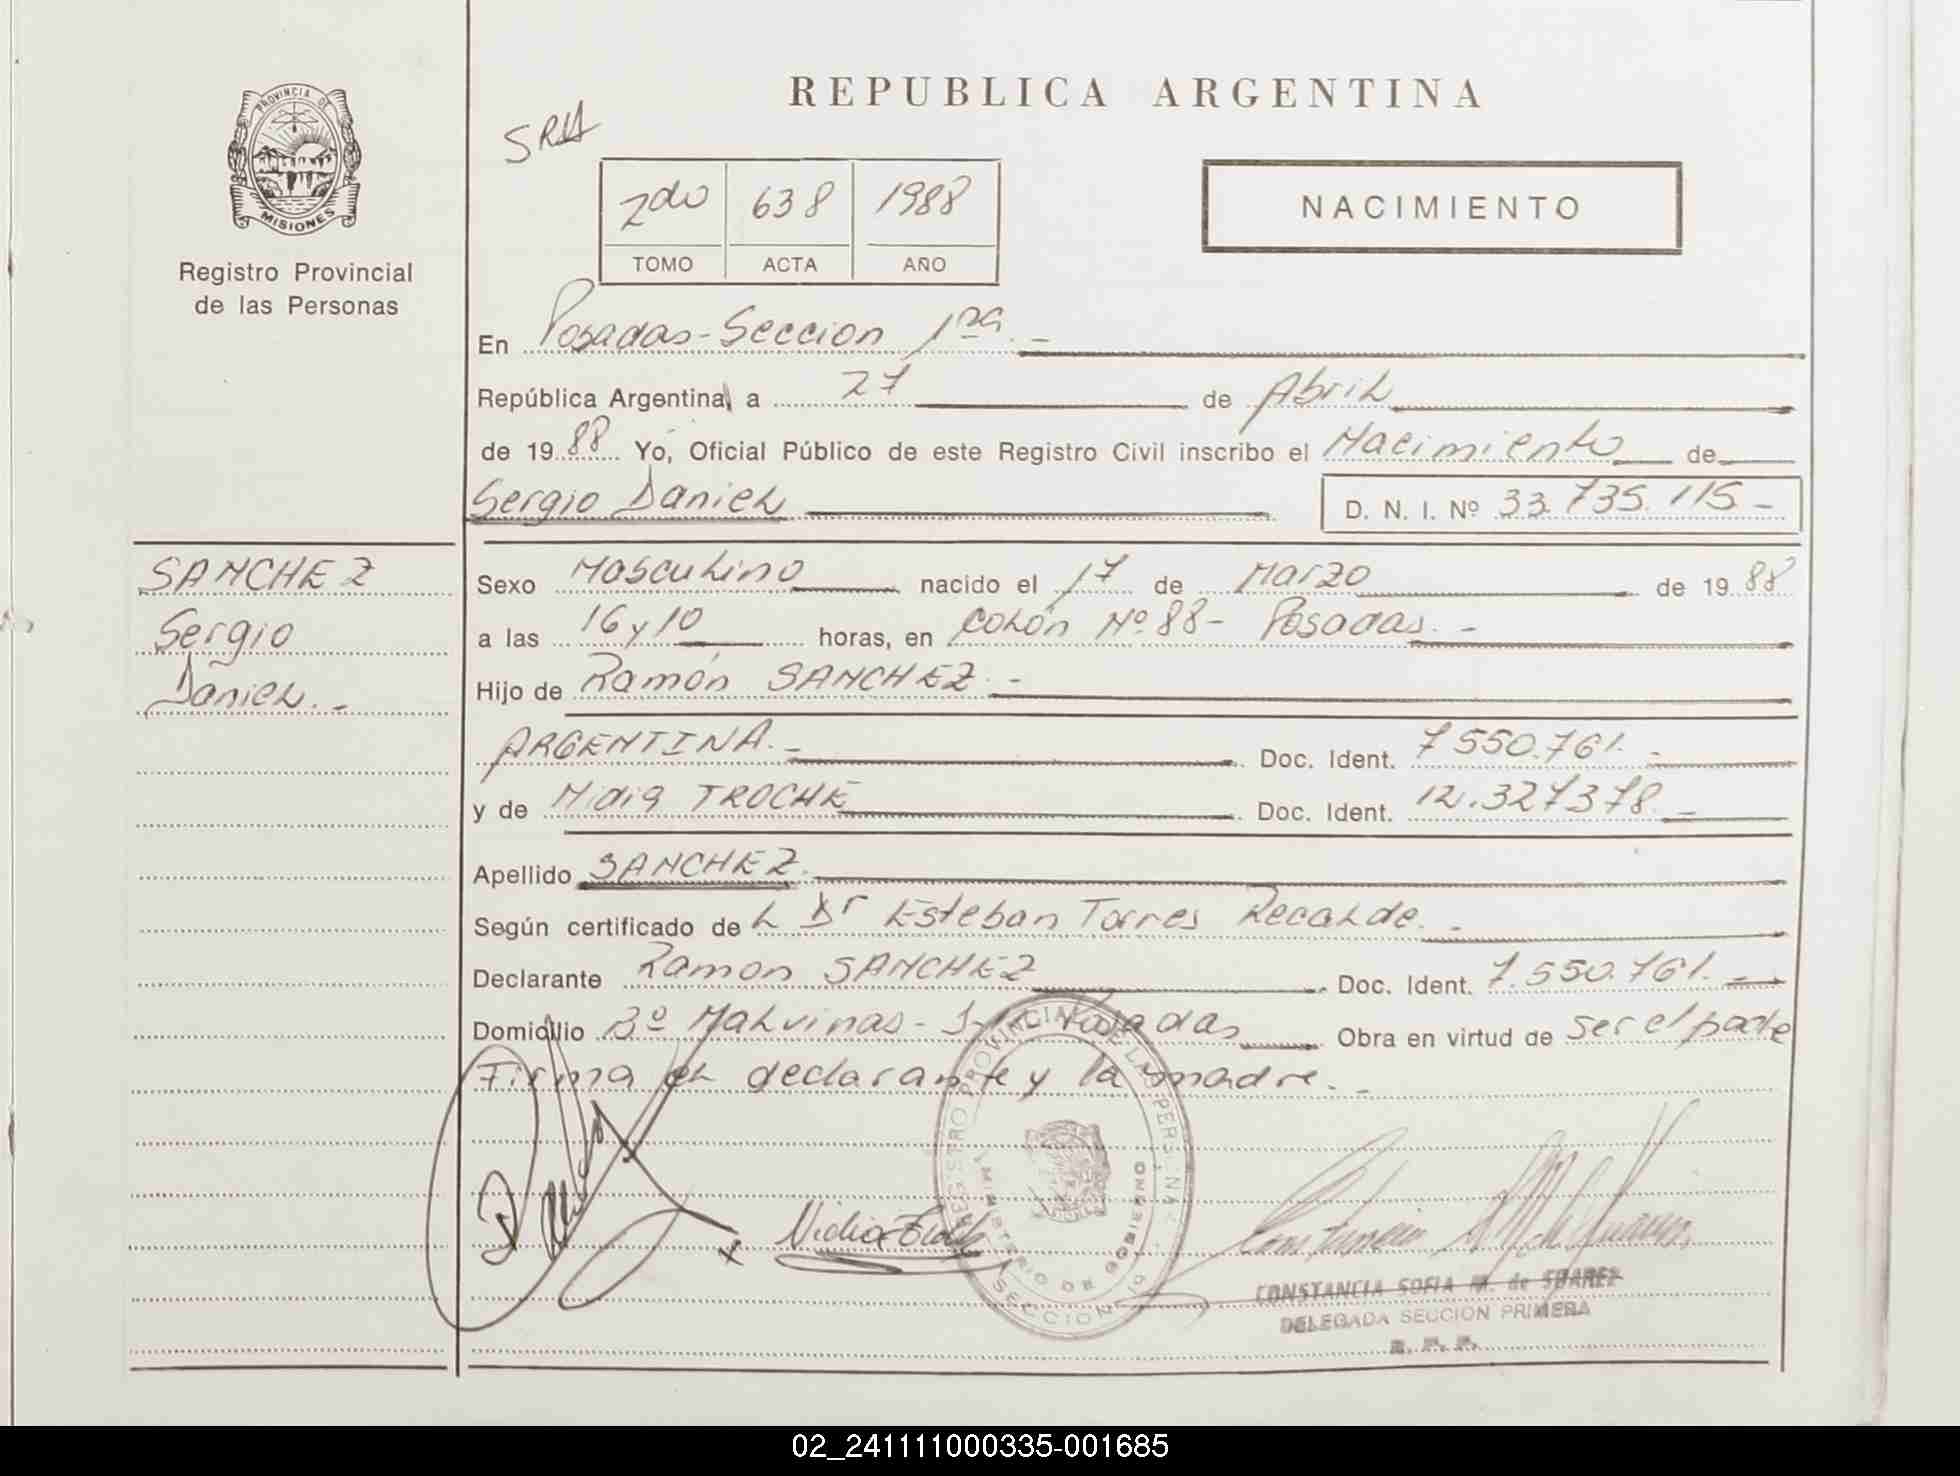 REPUBLICA ARGENTINA
PROVINCIA DE
MISIONES
Registro Provincial
de las Personas
2do 638 1988
TOMO ACTA AÑO
NACIMIENTO
En Posadas-Seccion 1ra.-
República Argentina, a 27 de Abril
de 1988 Yo, Oficial Público de este Registro Civil inscribo el Nacimiento de
Sergio Daniel D. N. I. Nº 33.735.115-
SANCHEZ
Sergio
Daniel.-
Sexo Masculino nacido el 17 de Marzo de 1988
a las 16 y 10 horas, en Colón Nº 88- Posadas.-
Hijo de Ramón SANCHEZ.-
ARGENTINA.- Doc. Ident. 7550.761.-
y de Nidia TROCHE Doc. Ident. 12.327378.-
Apellido SANCHEZ.
Según certificado de L Dr Esteban Torres Recalde.-
Declarante Ramon SANCHEZ Doc. Ident. 7.550.761.-
Domicilio Bº Malvinas- Posadas Obra en virtud de ser el padre
Firma el declarante y la madre.-
REGISTRO PROVINCIAL DE LAS PERSONAS
MINISTERIO DE GOBIERNO
SECCION 1a
x Nidia
CONSTANCIA SOFIA M. de SUAREZ
DELEGADA SECCION PRIMERA
R. P. P.
02_241111000335-001685